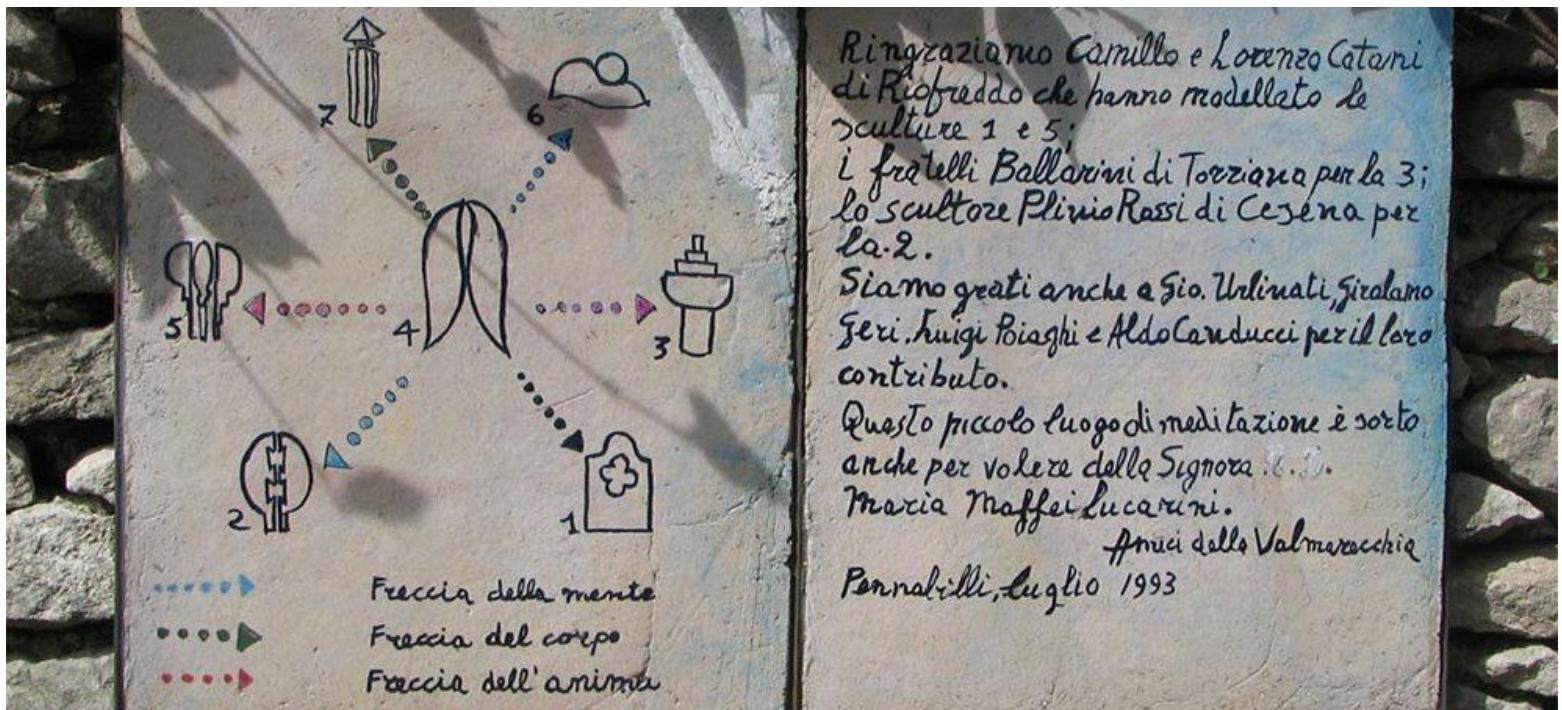 7
6
5
4
3
2
1
Freccia della mente
Freccia del corpo
Freccia dell'anima
Ringraziamo Camillo e Lorenzo Catani
di Riofreddo che hanno modellato le
sculture 1 e 5;
i fratelli Ballarini di Torriana per la 3;
lo scultore Plinio Rossi di Cesena per
la.2.
Siamo grati anche a Gio. Urbinati, Girolamo
Geri, Luigi Poiaghi e Aldo Canducci per il loro
contributo.
Questo piccolo luogo di meditazione è sorto
anche per volere della Signora
Maria Maffei Lucarini.
Amici della Valmarecchia
Pennabilli, luglio 1993